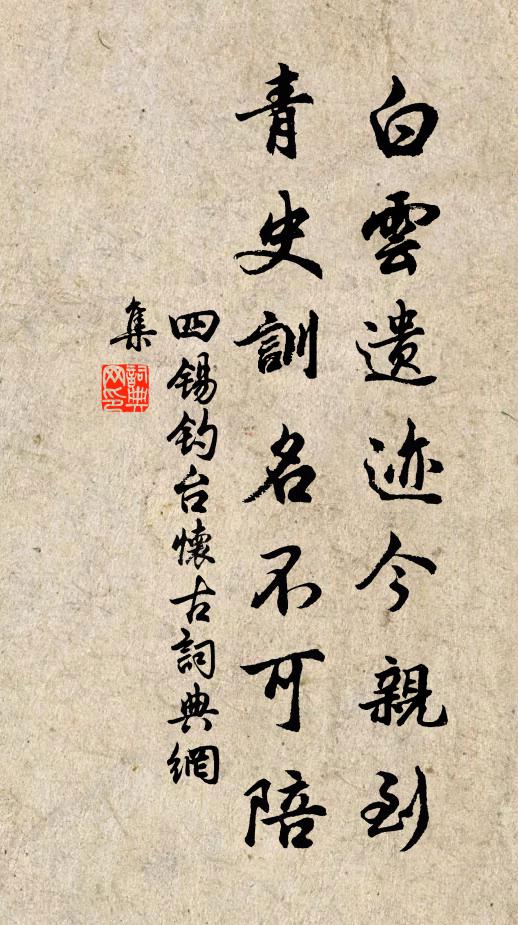 白雲遺迹今親到
青史訓名不可陪
四錫釣台懷古詞典網
集
詞典
网印